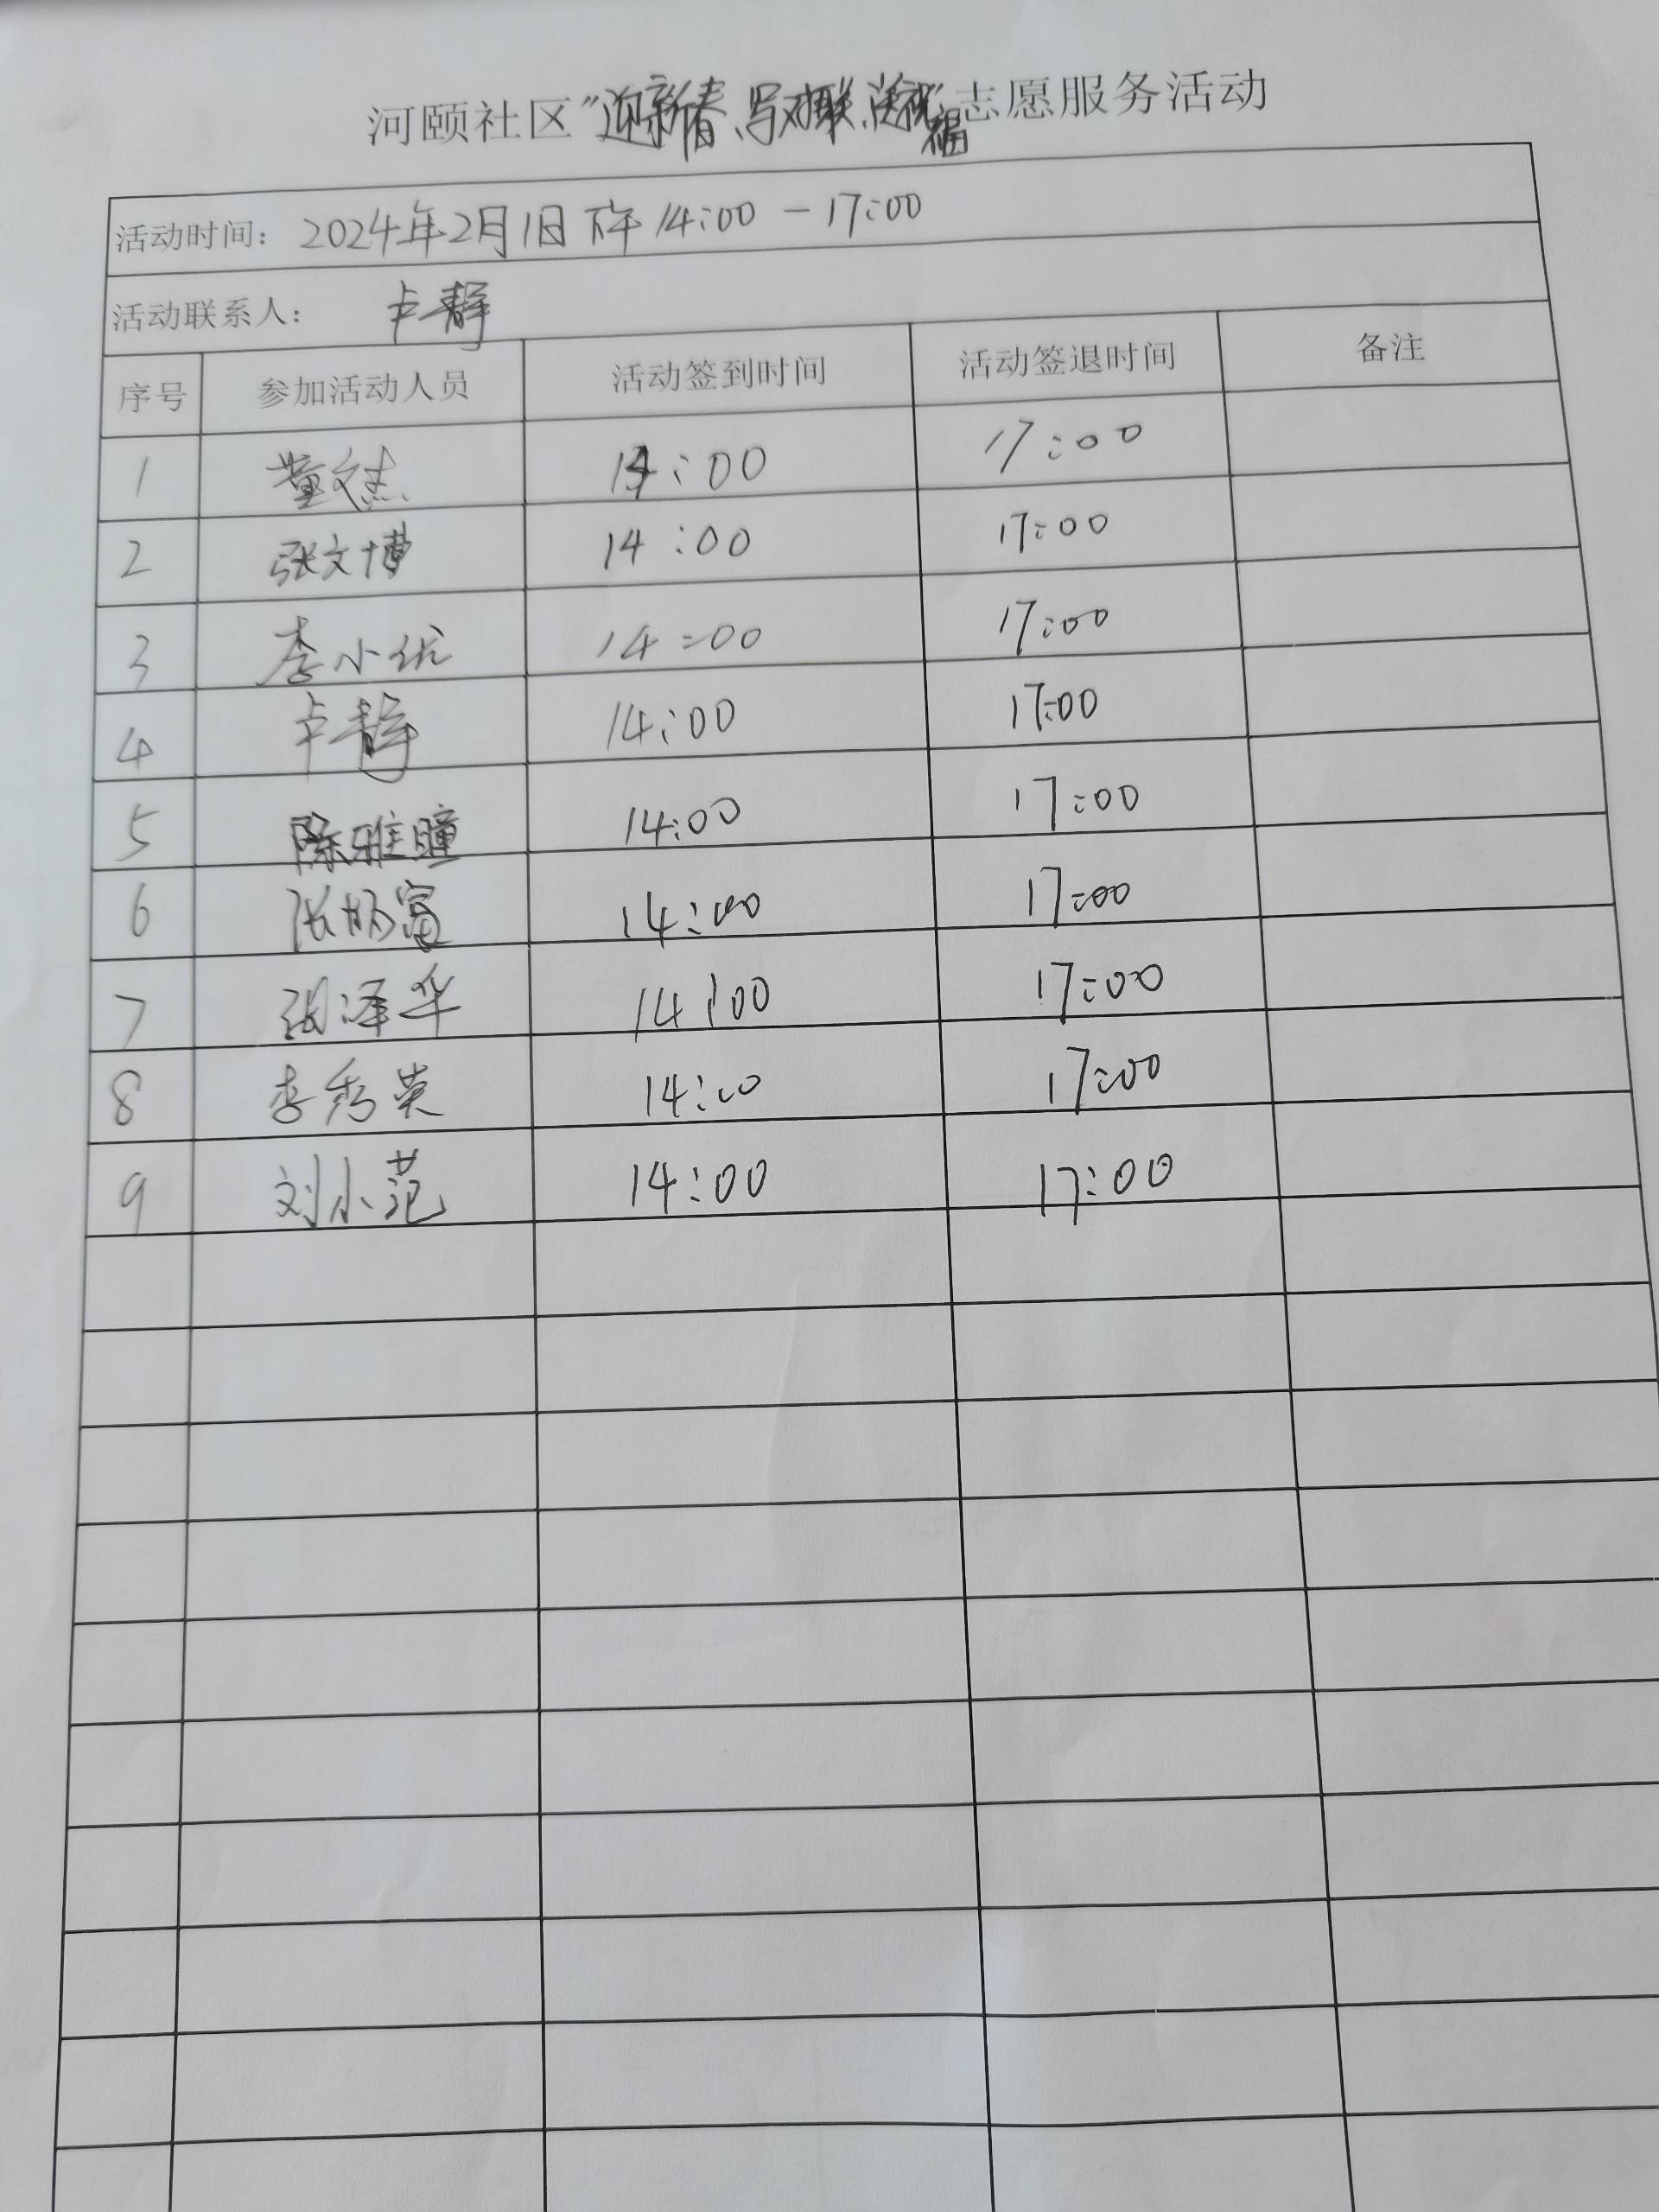 河颐社区"迎新春、写对联、送祝福"志愿服务活动
活动时间: 2024年2月1日 下午 14:00 - 17:00
活动联系人: 卢静
序号 参加活动人员 活动签到时间 活动签退时间 备注
1 董文杰 14:00 17:00
2 张文博 14:00 17:00
3 李小优 14:00 17:00
4 卢静 14:00 17:00
5 陈雅瞳 14:00 17:00
6 张炳富 14:00 17:00
7 张泽华 14:00 17:00
8 李秀英 14:00 17:00
9 刘小范 14:00 17:00